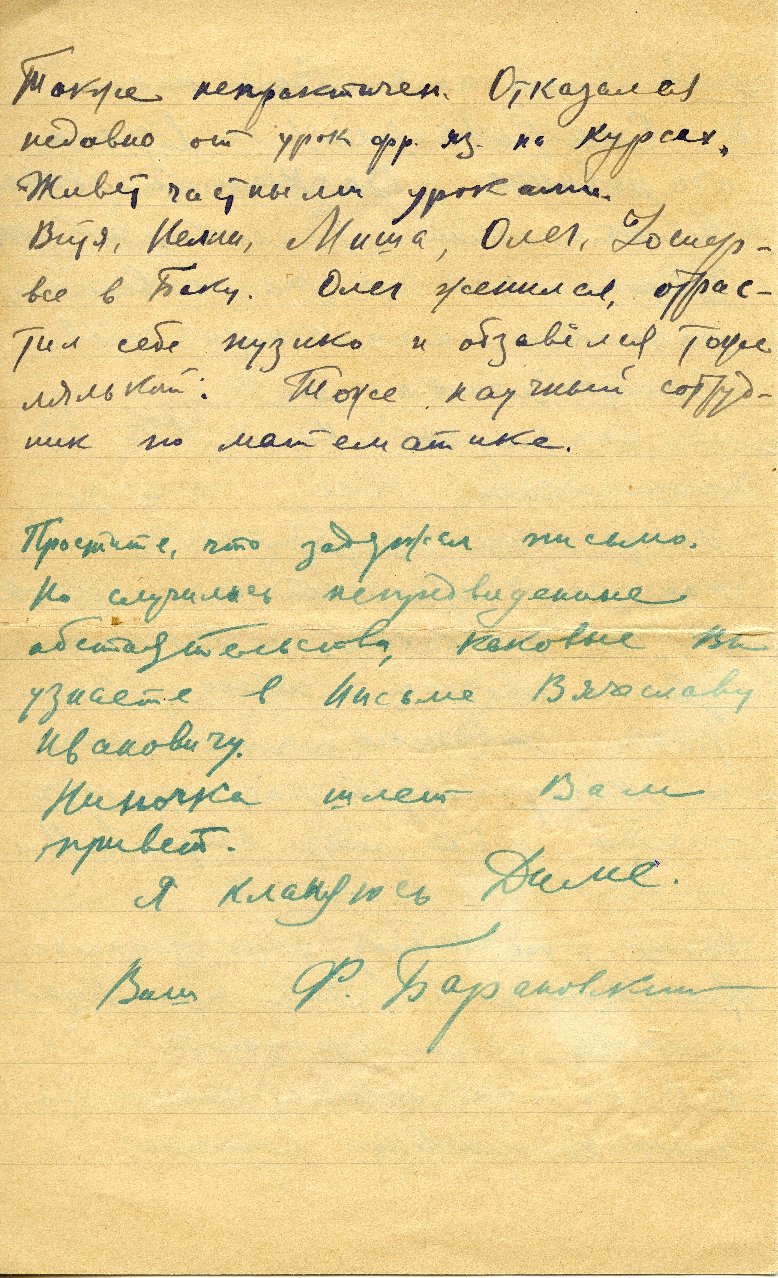 Также непрактичен. Отказался
недавно от урок. фр. яз. на курсах.
Живет частными уроками.
Витя, Нелли, Миша, Олег,
все в Баку. Олег женился, отрас-
тил себе пузико и обзавёлся тоже
лялькой. Тоже научный сотруд-
ник по математике.
Простите, что задержал письмо.
Но случились непредвиденные
обстоятельства, каковые Вы
узнаете в письме Вячеславу
Ивановичу.
Ниночка шлет Вам
привет.
Я кланяюсь Диме.
Ваш Ф. Барановский